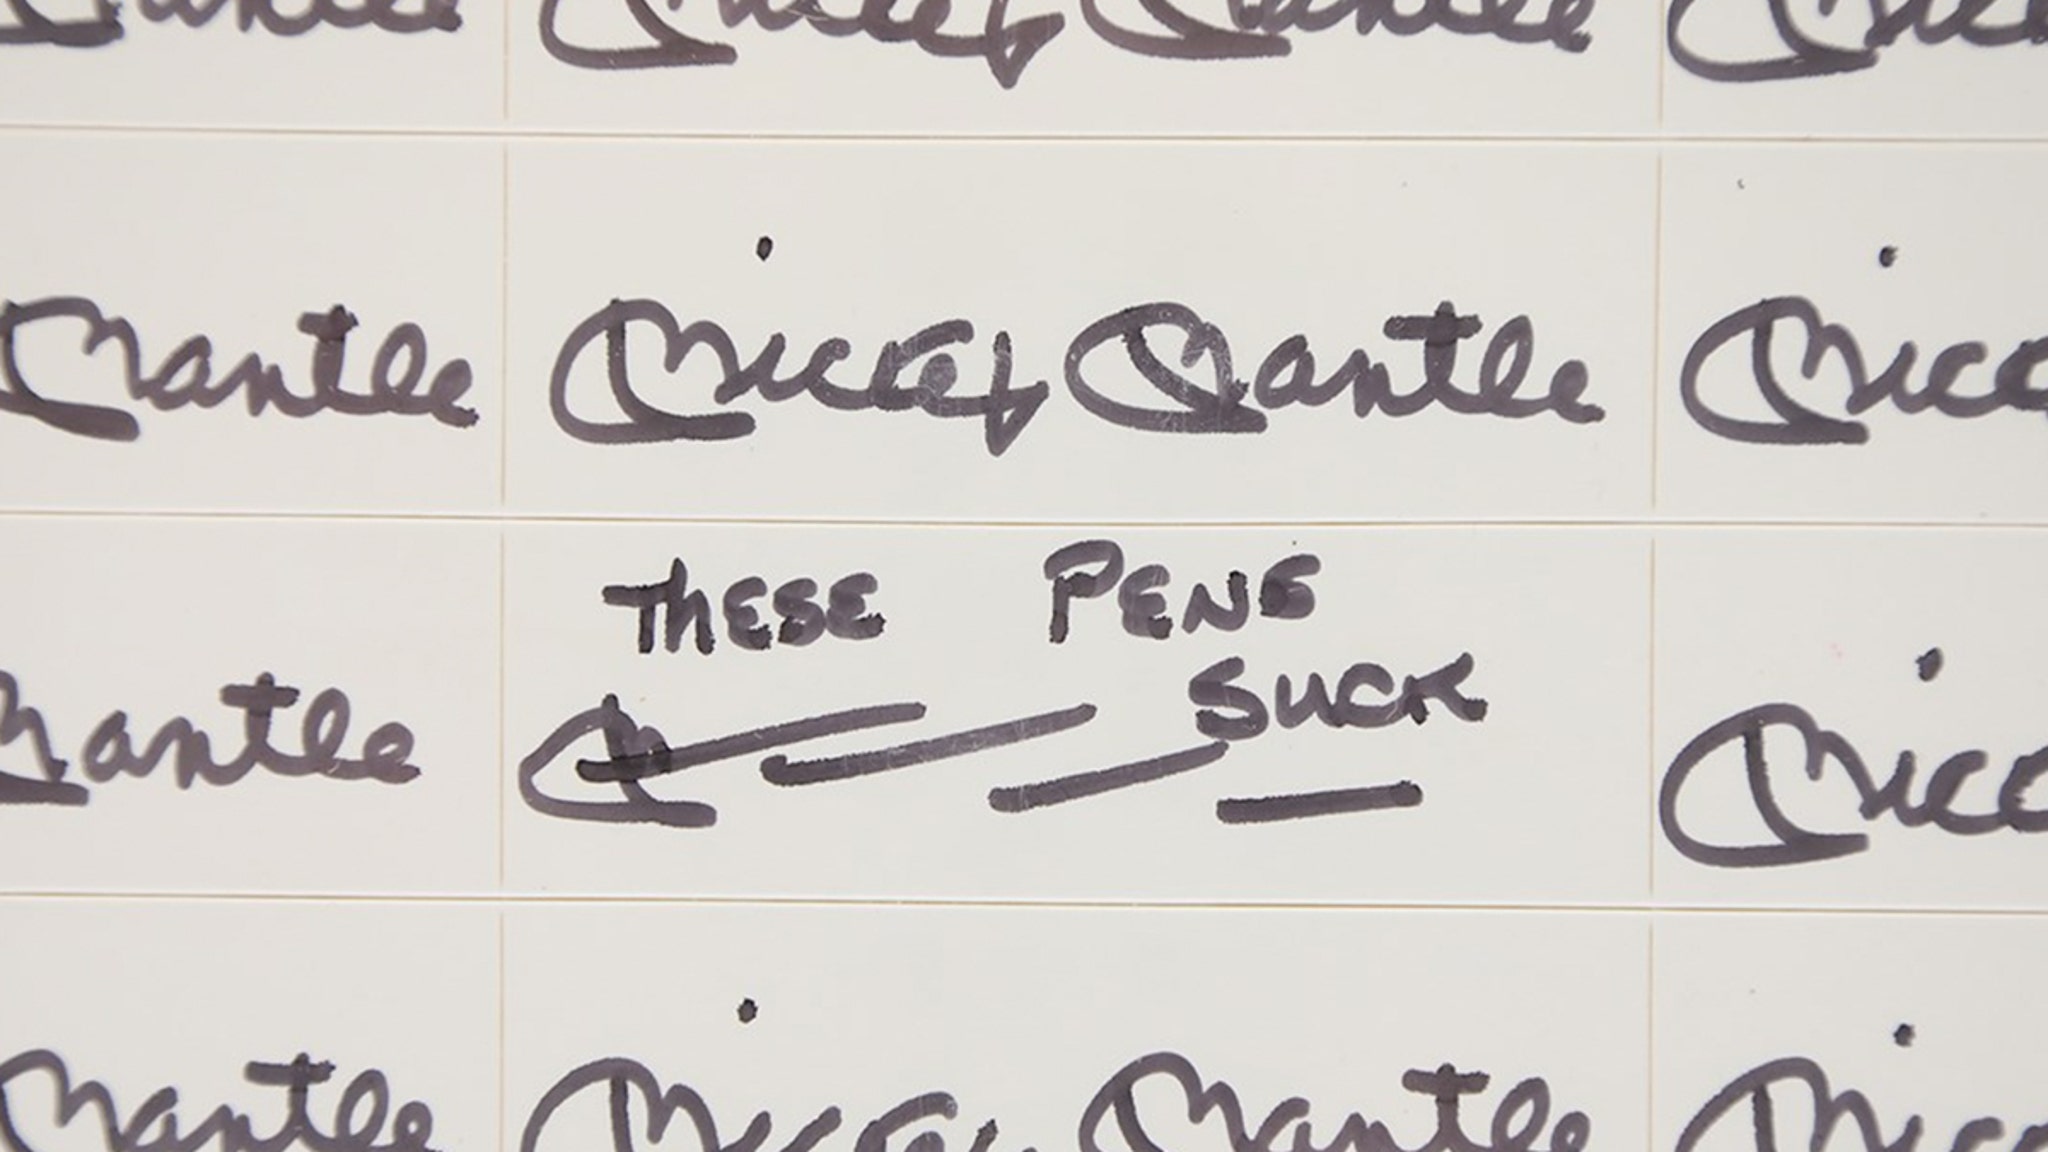 Mantle Mickey Mantle Mick
Mantle Mickey Mantle Mick
THESE PENS
SUCK
Mantle M Mick
Mantle Mickey Mantle Mick